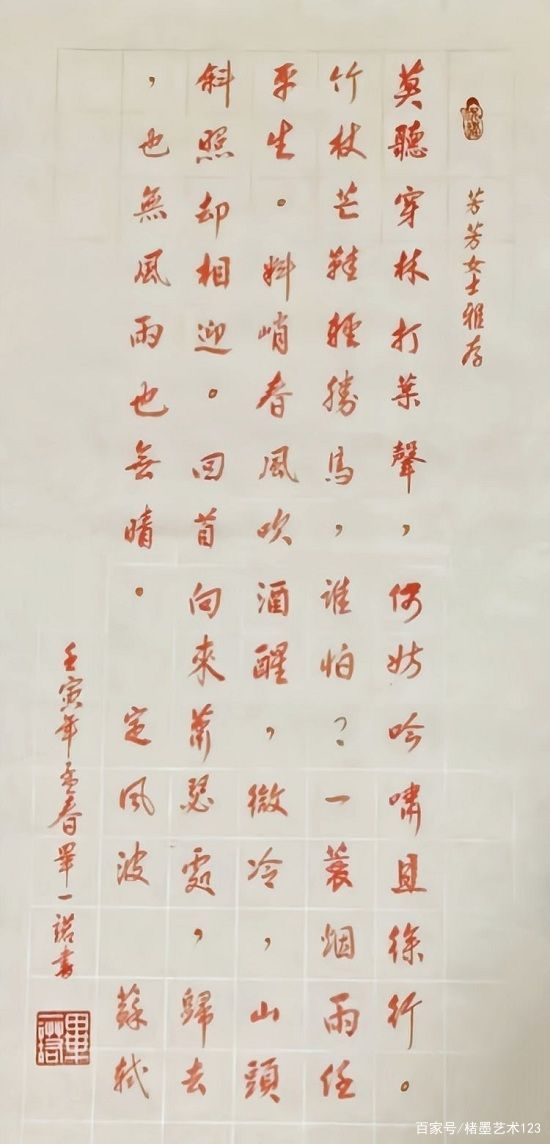 芳芳女士雅存
莫聽穿林打葉聲，何妨吟嘯且徐行。
竹杖芒鞋輕勝馬，誰怕？一蓑烟雨任
平生。料峭春風吹酒醒，微冷，山頭
斜照却相迎。回首向來蕭瑟處，歸去
，也無風雨也無晴。 定風波 蘇軾
壬寅年孟春畢一諾書
百家号/楮墨艺术123